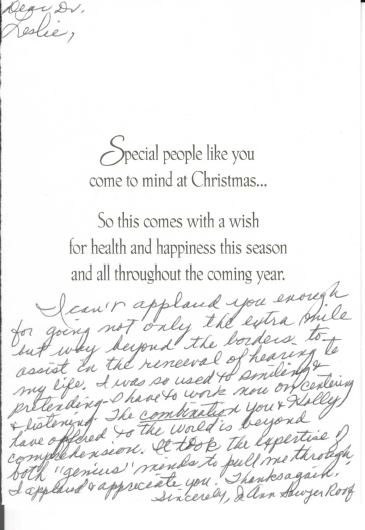 Dear Dr.
Leslie,
Special people like you
come to mind at Christmas...
So this comes with a wish
for health and happiness this season
and all throughout the coming year.
I can't applaud you enough
for going not only the extra mile
but way beyond the borders to
assist in the renewal of hearing to
my life. I was so used to smiling &
pretending - I have to work now on centering
& listening. The combination you & Holly
have offered to the world is beyond
comprehension. It took the expertise of
both "genius" minds to pull me through.
I applaud & appreciate you! Thanks again.
Sincerely, Jo Ann Sawyer Roof